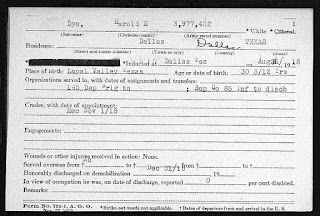 Dye, Harold M 3,977,402 1
(Surname) (Christian name) (Army serial number) * White * Colored.
Residence: Dallas Dallas TEXAS
(Street and house number) (Town or city) (County) (State)
* Inducted at Dallas Tex on Aug 18
Place of birth: Loyal Valley Texas Age or date of birth: 30 3/12 yrs
Organizations served in, with dates of assignments and transfers:
165 Dep Brig to ; Sup Co 85 Inf to disch
Grades, with date of appointment:
Mec Nov 1/18
Engagements:
Wounds or other injuries received in action: None.
Served overseas from † no to † from † to †
Honorably discharged on demobilization Dec 31/18 19
In view of occupation he was, on date of discharge, reported 0 per cent disabled.
Remarks:
Form No. 724-1, A. G. O. * Strike out words not applicable. † Dates of departure from and arrival in the U. S.